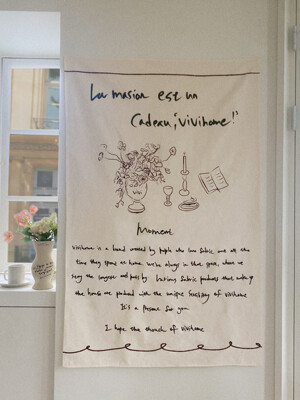 La masion est un
Cadeau, "vivihome!"
Moment
Vivihome is a brand created by people who love fabric and all the
time they spend at home. We're always in that space, where we
stay the longest and pass by. Various fabric products that make up
the house are packed with the unique of vivihome
It's a present for you
I hope the of vivihome